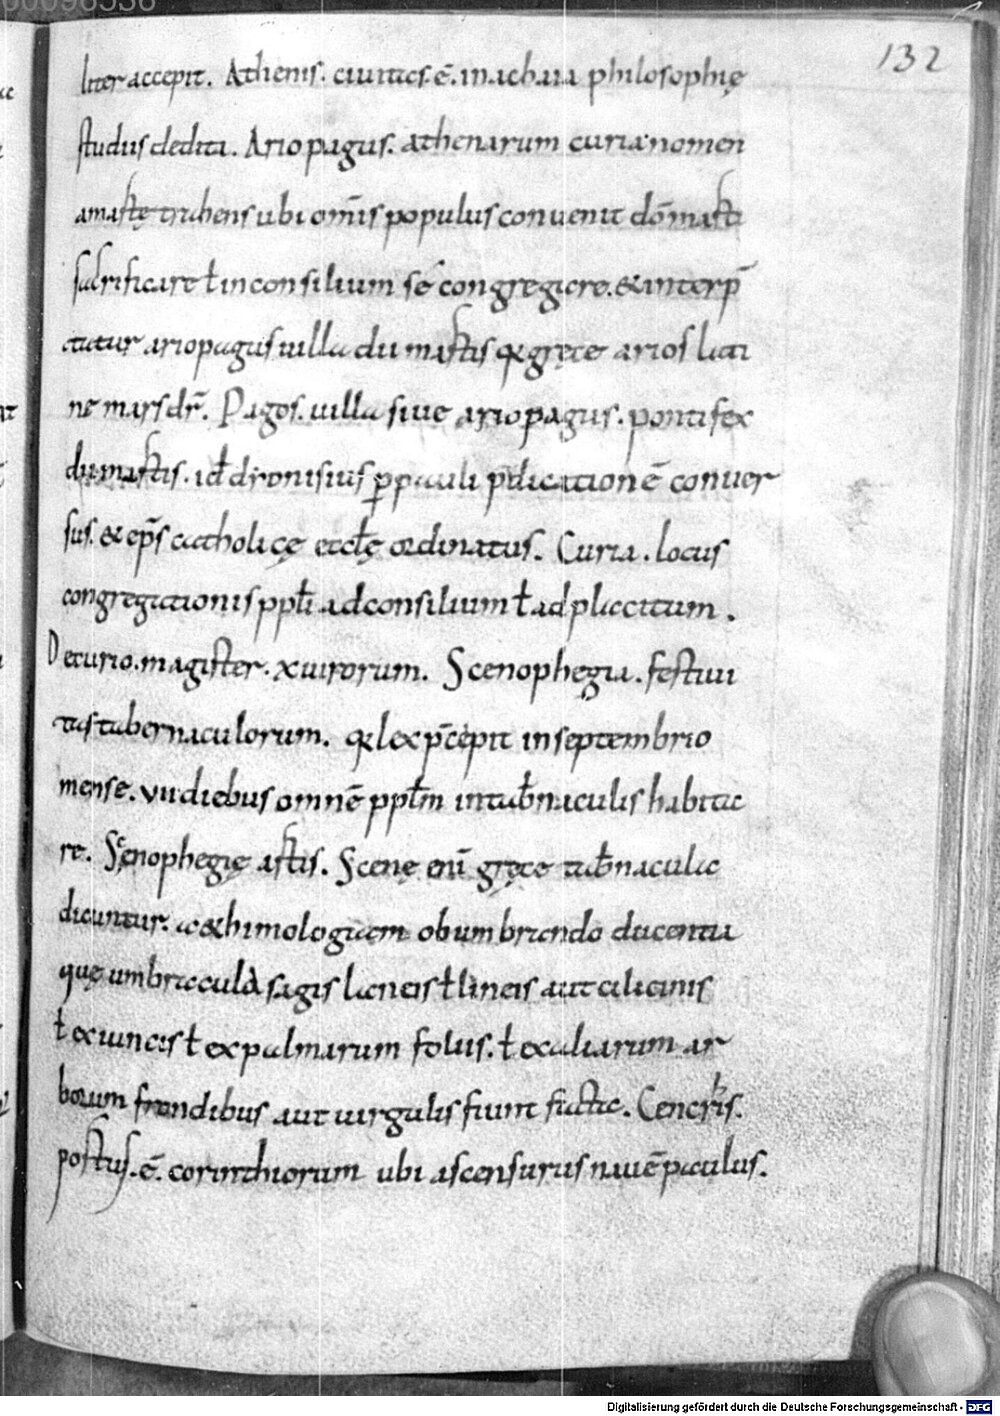 00096536
132
liter accepit. Athenis. ciuitas. ē. in achaia philosophię
studiis dedita. Ariopagus. athenarum curia nomen
a martę trahens ubi om̄is populus conuenit do marti
sacrificare ł in consilium se congregare. & interp̄
tatur ariopagus uilla martis q̄ gręce arios lati
ne mars dr̄. Pagos. uilla siue ariopagus. pontifex
martis. id dionisius ꝑ pauli p̄dicationē conuer
sus. & ep̄s catholicę eccłę ordinatus. Curia. locus
congregationis ppłi ad consilium ł ad placitum.
Decurio. magister. x uirorum. Scenophegia. festiui
tas tabernaculorum. q̄ lex p̄cepit in septembrio
mense. vii diebus omnē ppłm in tab̄naculis habita
re. Scenophegię Scenę eni gręce tab̄nacula
dicuntur. a&himologiam obumbrando
quę umbracula sagis laneis ł lineis aut cilicinis
ł ex iuncis ł ex palmarum foliis. ł ex aliarum ar
borum frondibus aut uirgulis fiunt facta. Cencris.
portus. ē. corinthiorum ubi ascensurus nauē paulus.
Digitalisierung gefördert durch die Deutsche Forschungsgemeinschaft - DFG